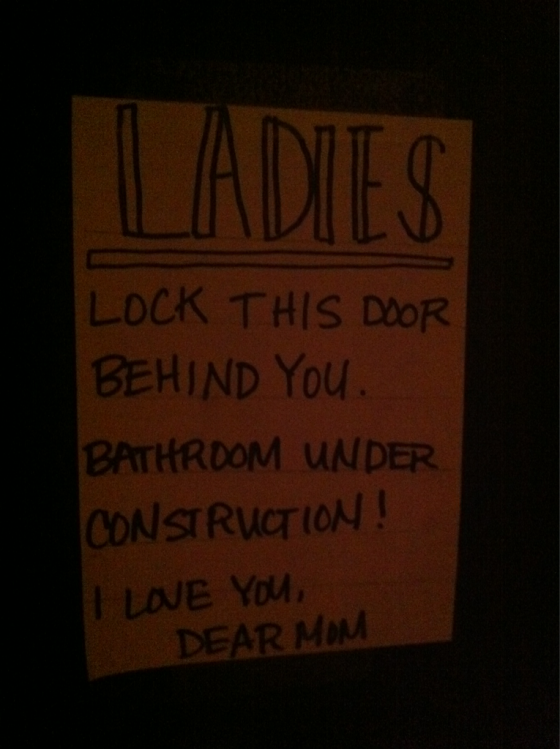 LADIES
LOCK THIS DOOR
BEHIND YOU.
BATHROOM UNDER
CONSTRUCTION!
I LOVE YOU,
DEAR MOM